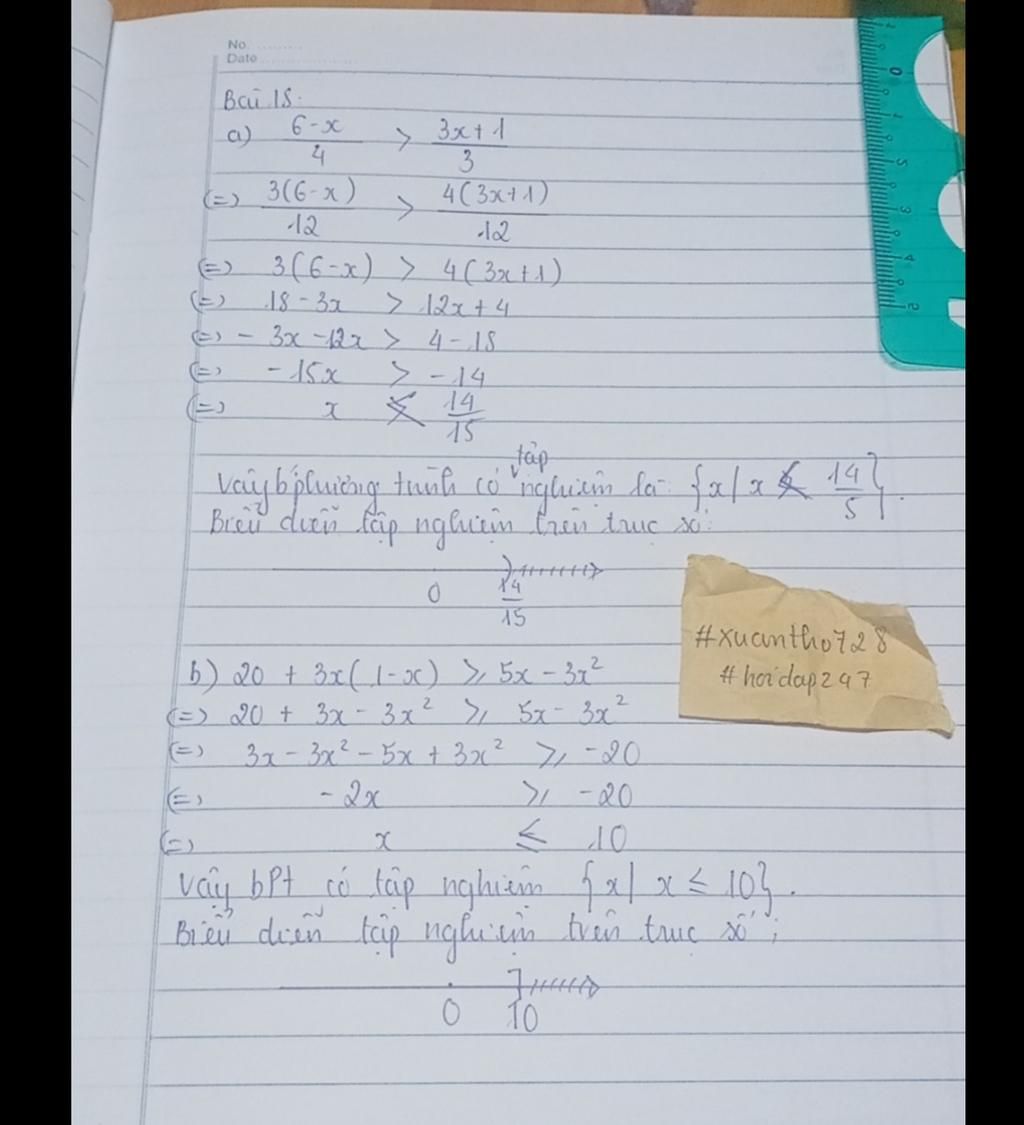 No.
Date
Bài 18.
a) (6-x)/4 > (3x+1)/3
(=) 3(6-x)/12 > 4(3x+1)/12
(=) 3(6-x) > 4(3x+1)
(=) 18-3x > 12x+4
(=) -3x-12x > 4-18
(=) -15x > -14
(=) x < 14/15
tập
Vậy bphương trình có nghiệm là: {x/x < 14/5}.
Biểu diễn tập nghiệm trên trục số:
0 14/15
b) 20 + 3x(1-x) ≥ 5x-3x²
(=) 20 + 3x-3x² ≥ 5x-3x²
(=) 3x-3x²-5x+3x² ≥ -20
(=) -2x ≥ -20
(=) x ≤ 10
Vậy bPt có tập nghiệm {x/ x ≤ 10}.
Biểu diễn tập nghiệm trên trục số;
0 10
#xuantho728
#hoidap247